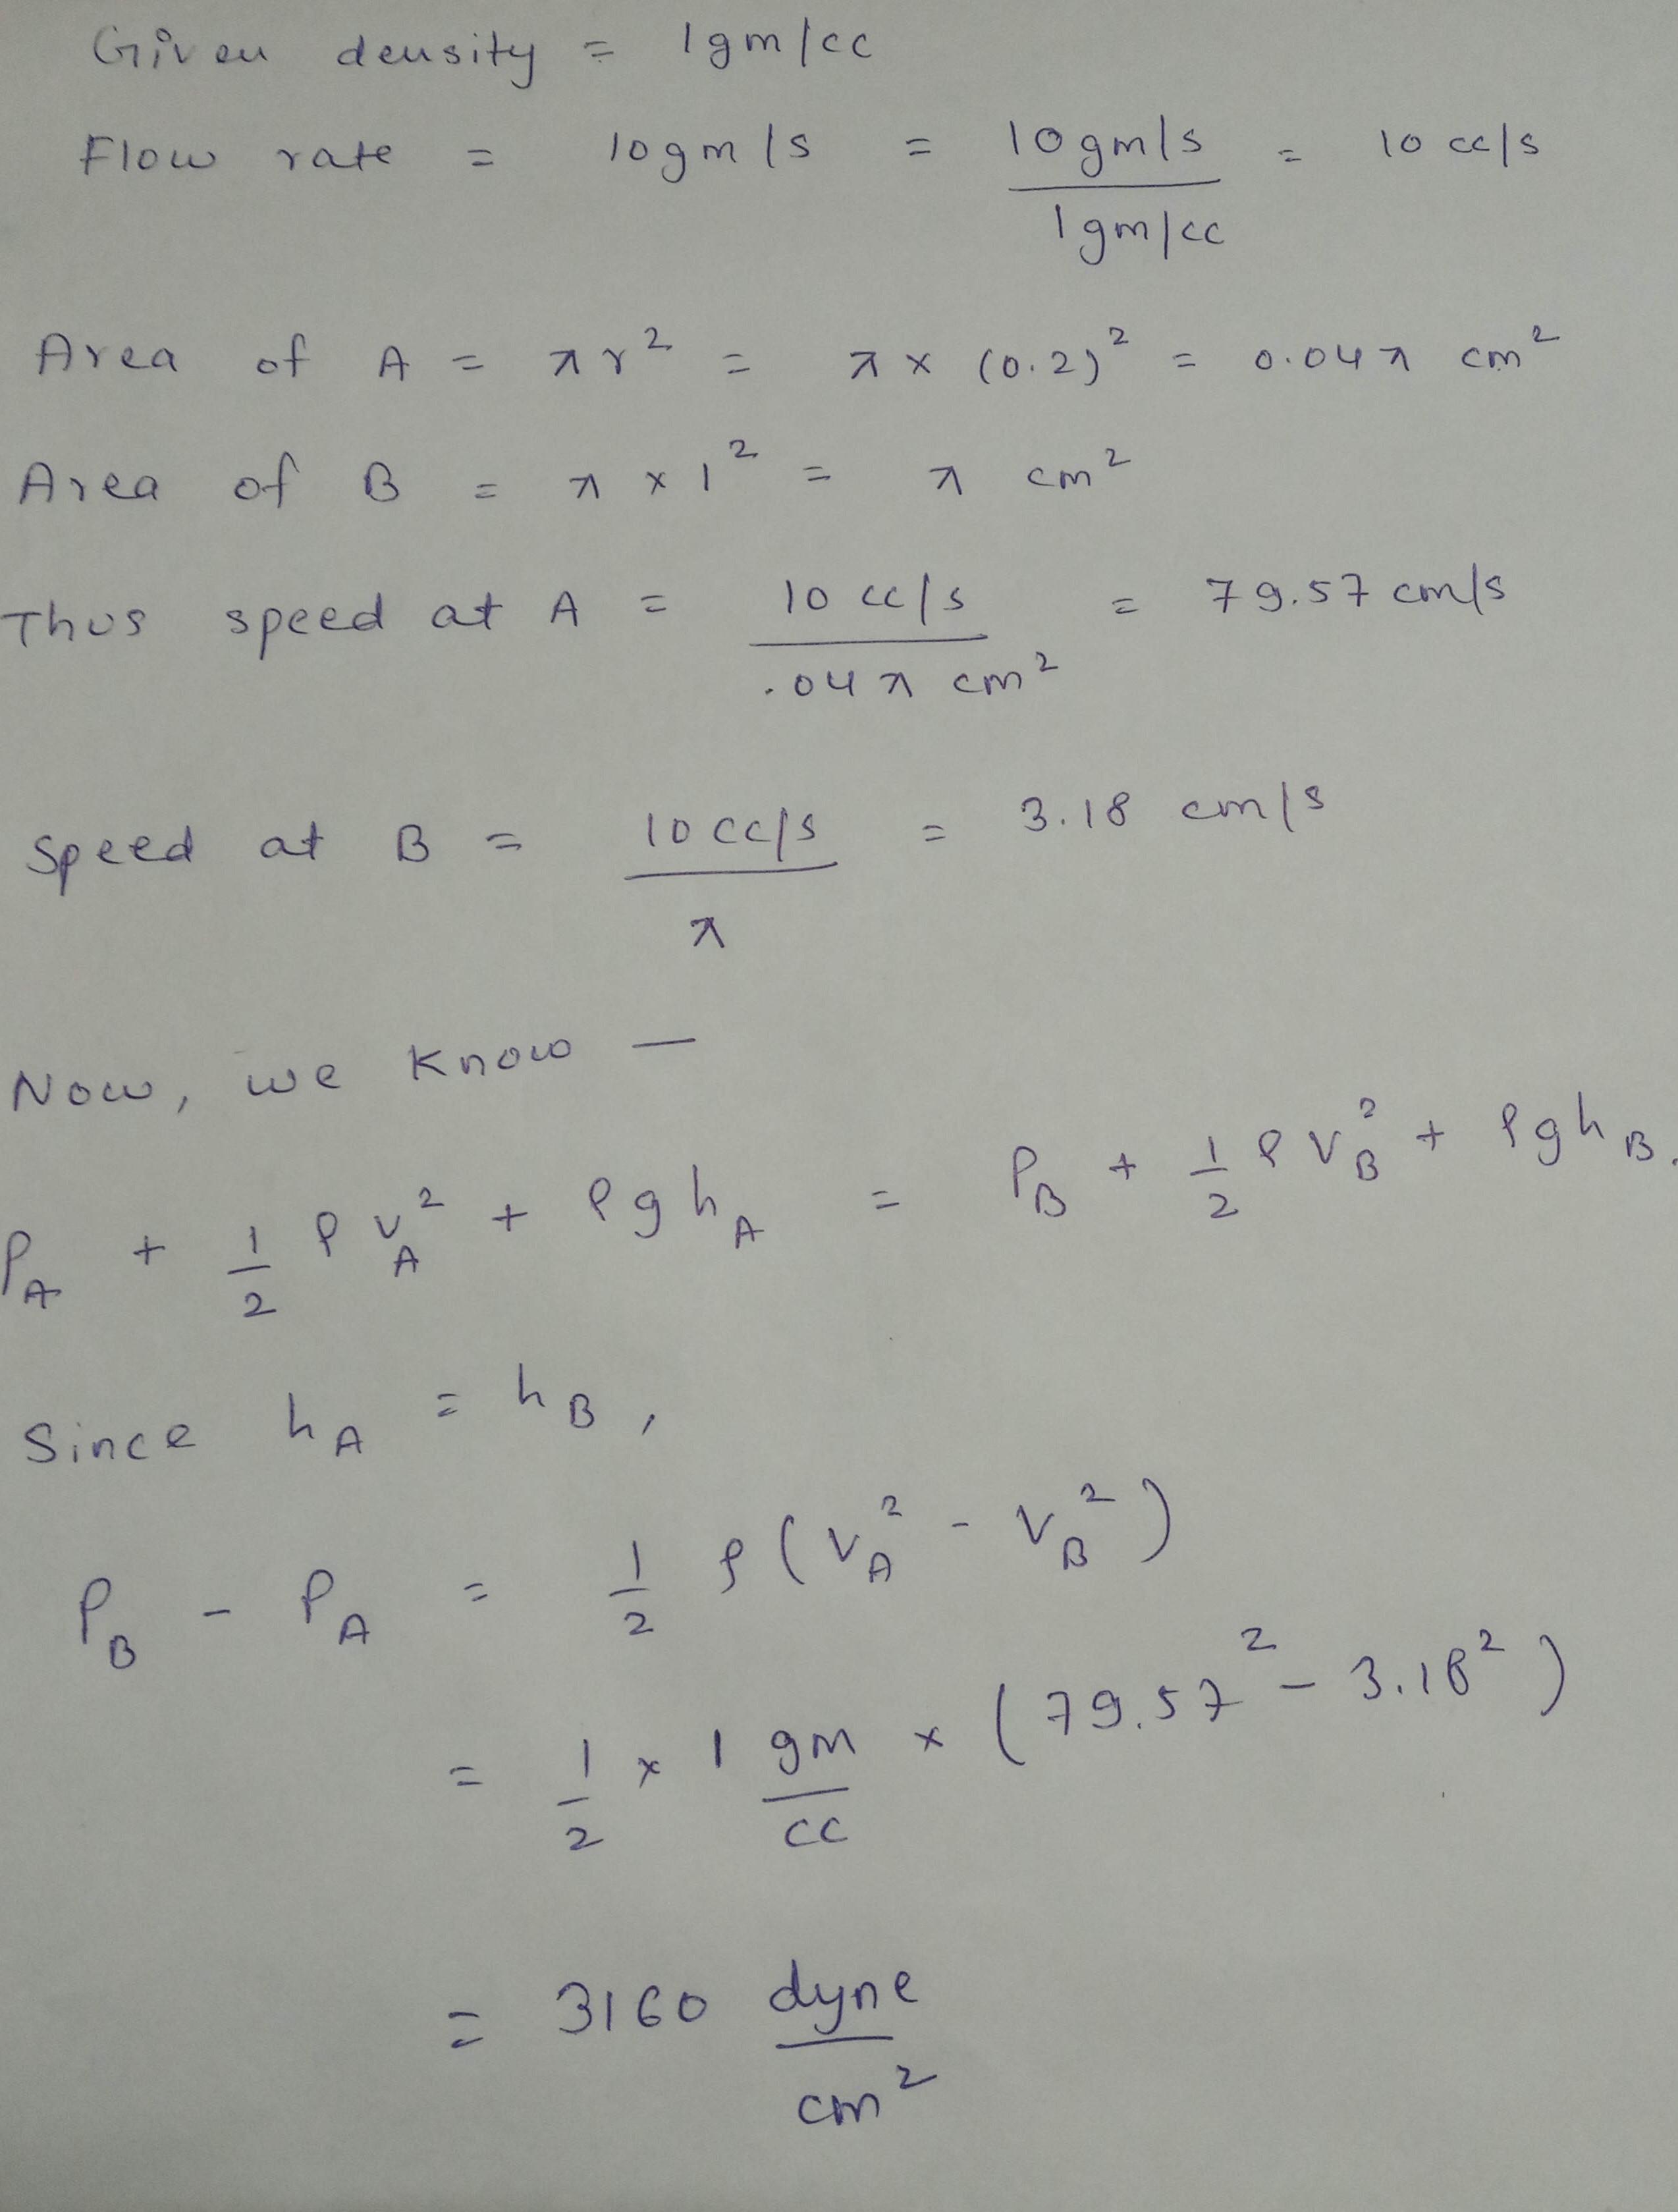 Given density = 1gm/cc
Flow rate = 10gm/s = 10gm/s / 1gm/cc = 10 cc/s
Area of A = πr² = π × (0.2)² = 0.04π cm²
Area of B = π × 1² = π cm²
Thus speed at A = 10 cc/s / .04π cm² = 79.57 cm/s
Speed at B = 10cc/s / π = 3.18 cm/s
Now, we know —
P_A + 1/2 ρ v_A² + ρgh_A = P_B + 1/2 ρ v_B² + ρgh_B.
Since h_A = h_B,
P_B - P_A = 1/2 ρ(v_A² - v_B²)
= 1/2 × 1 gm/cc × (79.57² - 3.18²)
= 3160 dyne/cm²